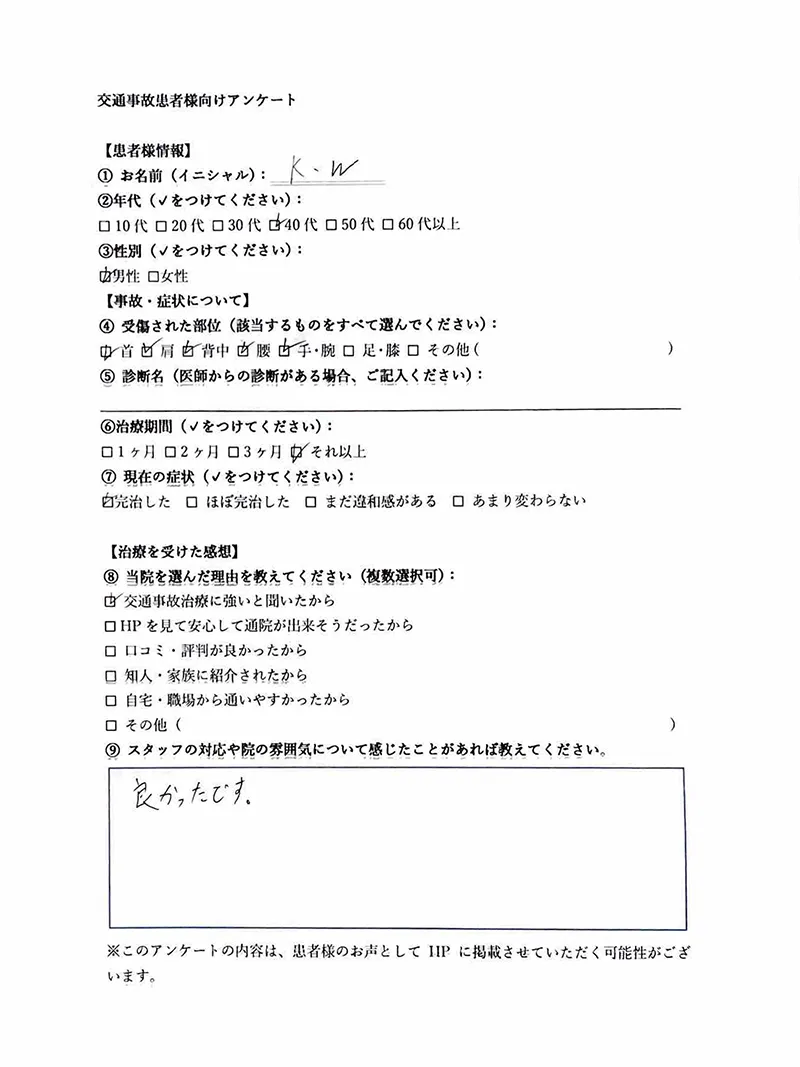 交通事故患者様向けアンケート
【患者様情報】
① お名前（イニシャル）： K.W
②年代（✓をつけてください）：
☐10代 ☐20代 ☐30代 ☑40代 ☐50代 ☐60代以上
③性別（✓をつけてください）：
☑男性 ☐女性
【事故・症状について】
④ 受傷された部位（該当するものをすべて選んでください）：
☑首 ☑肩 ☑背中 ☑腰 ☑手・腕 ☐足・膝 ☐その他（ ）
⑤ 診断名（医師からの診断がある場合、ご記入ください）：
⑥治療期間（✓をつけてください）：
☐1ヶ月 ☐2ヶ月 ☐3ヶ月 ☑それ以上
⑦ 現在の症状（✓をつけてください）：
☑完治した ☐ほぼ完治した ☐まだ違和感がある ☐あまり変わらない
【治療を受けた感想】
⑧ 当院を選んだ理由を教えてください（複数選択可）：
☑交通事故治療に強いと聞いたから
☐HPを見て安心して通院が出来そうだったから
☐口コミ・評判が良かったから
☐知人・家族に紹介されたから
☐自宅・職場から通いやすかったから
☐その他（ ）
⑨ スタッフの対応や院の雰囲気について感じたことがあれば教えてください。
良かったです。
※このアンケートの内容は、患者様のお声として HP に掲載させていただく可能性がござ
います。